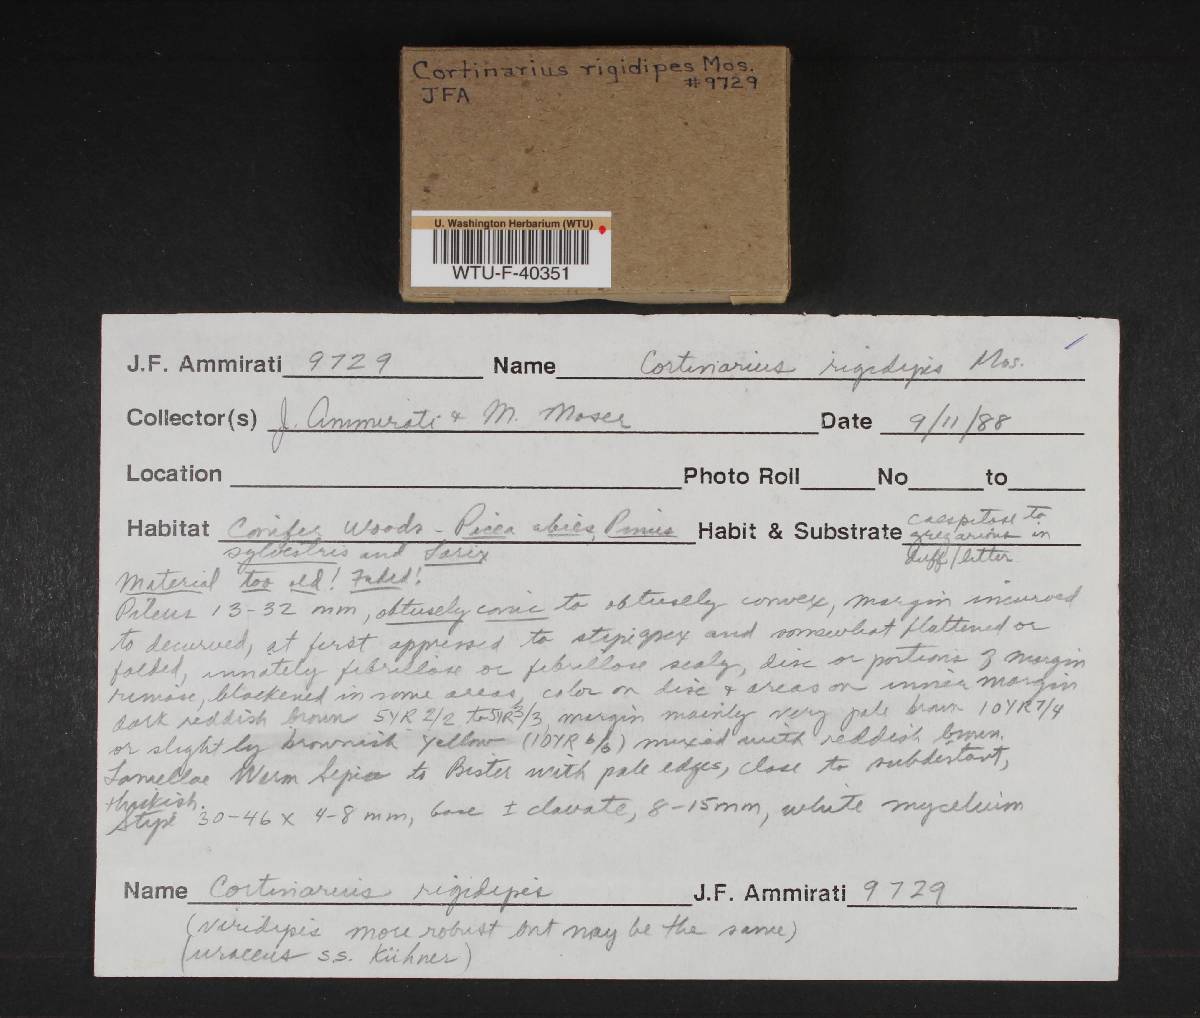 Cortinarius rigidipes Mos.
JFA #9729
U. Washington Herbarium (WTU)
WTU-F-40351
J.F. Ammirati 9729 Name Cortinarius rigidipis Mos.
Collector(s) J. Ammirati & M. Moser Date 9/11/88
Location Photo Roll No to
Habitat Conifer Woods - Picea abies, Pinus Habit & Substrate caespitose to
sylvestris and Larix gregarious in
duff/litter
Material too old! Faded!
Pileus 13-32 mm, obtusely conic to obtusely convex, margin incurved
to decurved, at first appressed to stipe apex and somewhat flattened or
folded, innately fibrillose or fibrillose scaly, disc or portions of margin
rimose, blackened in some areas, color on disc & areas on inner margin
dark reddish brown 5YR 2/2 to 5YR 3/3, margin mainly very pale brown 10YR 7/4
or slightly brownish yellow (10YR 6/6) mixed with reddish brown.
Lamellae Warm Sepia to Bister with pale edges, close to subdistant,
thickish.
Stipe 30-46 x 4-8 mm, base ± clavate, 8-15mm, white mycelium
Name Cortinarius rigidipis J.F. Ammirati 9729
(viridipis more robust but may be the same)
(uraceus s.s. Kühner)